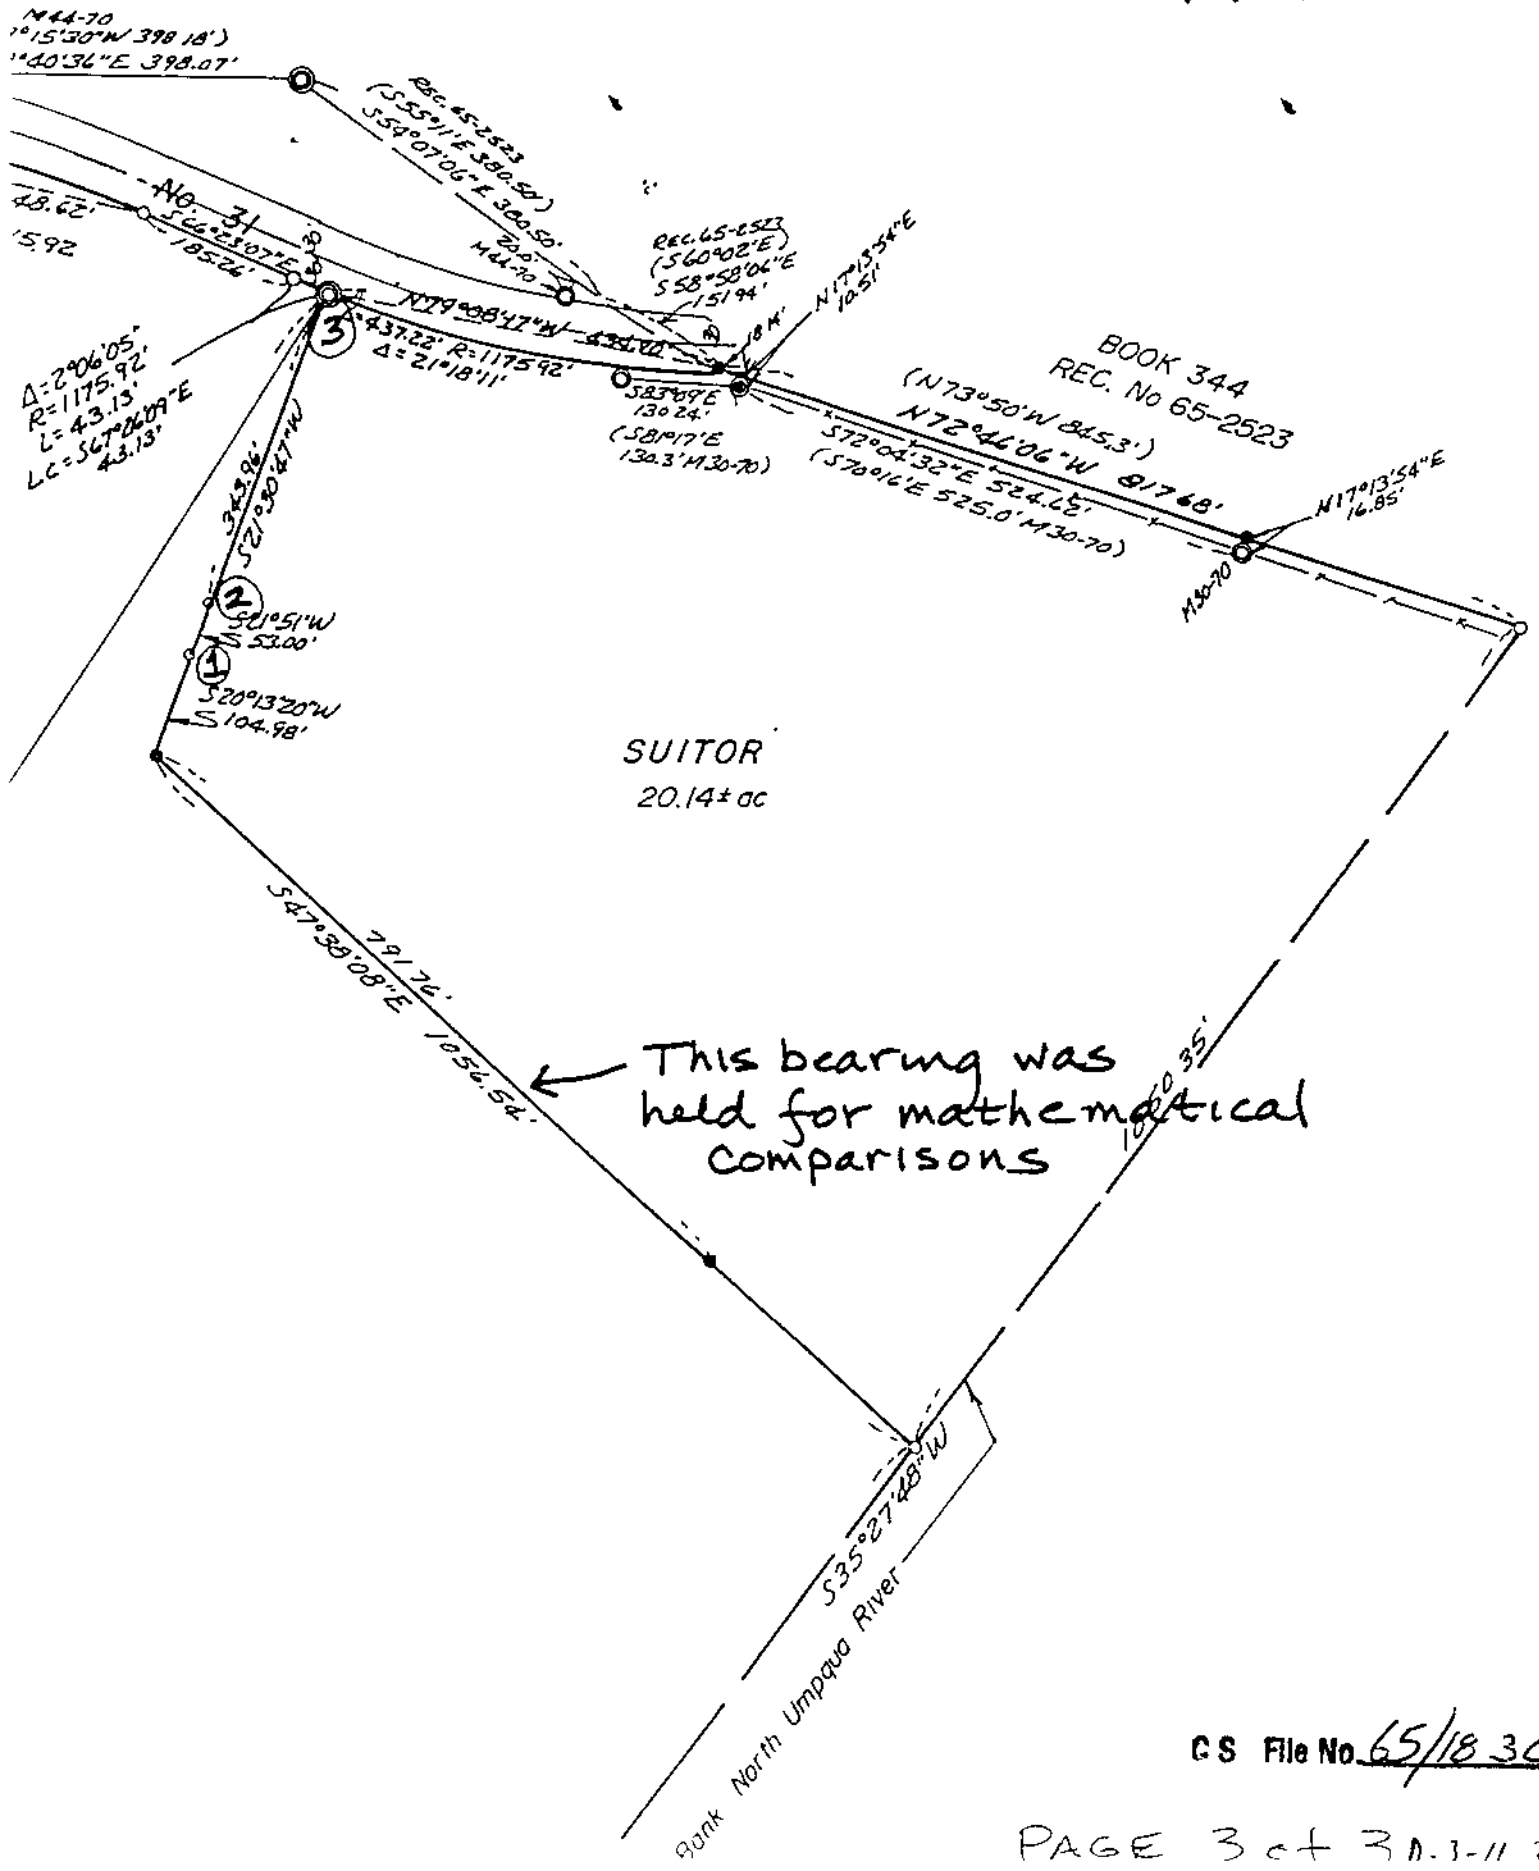 M44-70
°15'30"W 398.18')
°40'36"E 398.07'
REC. 65-2523
(S55°11'E 380.50')
S54°07'06"E 380.50'
No 31
S66°23'07"E
185.26'
48.62'
15.92
30
30
20.0'
M44-70
REC. 65-2523
(S60°02'E)
S58°58'06"E
151.94'
30
18.14'
N17°13'54"E
10.51'
N79°08'17"W 434.70'
437.22' R=1175.92'
Δ=21°18'11"
3
Δ=2°06'05"
R=1175.92'
L=43.13'
LC=S67°26'09"E
43.13'
S83°09'E
130.24'
(S81°17'E
130.3' M30-70)
BOOK 344
REC. No 65-2523
(N73°50'W 845.3')
N72°46'06"W 817.68'
S72°04'32"E 524.62'
(S70°16'E 525.0' M30-70)
N17°13'54"E
16.85'
M30-70
343.96'
S21°30'47"W
2
S21°51'W
53.00'
1
S20°13'20"W
104.98'
SUITOR
20.14± ac
791.76'
S47°38'08"E 1056.54'
This bearing was
held for mathematical
comparisons
35'
S35°27'48"W
Bank North Umpqua River
CS File No. 65/18 30
PAGE 3 of 3